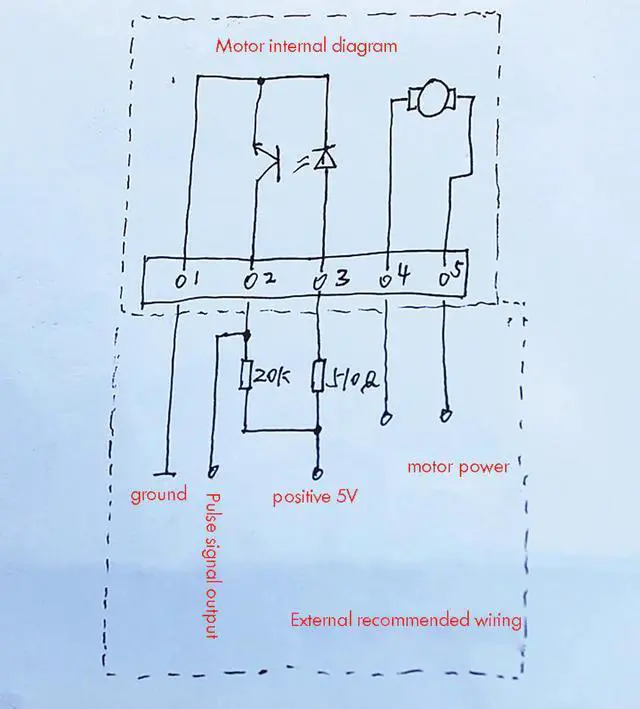 Motor internal diagram
1 2 3 4 5
20k 510Ω
ground
Pulse signal output
positive 5V
motor power
External recommended wiring